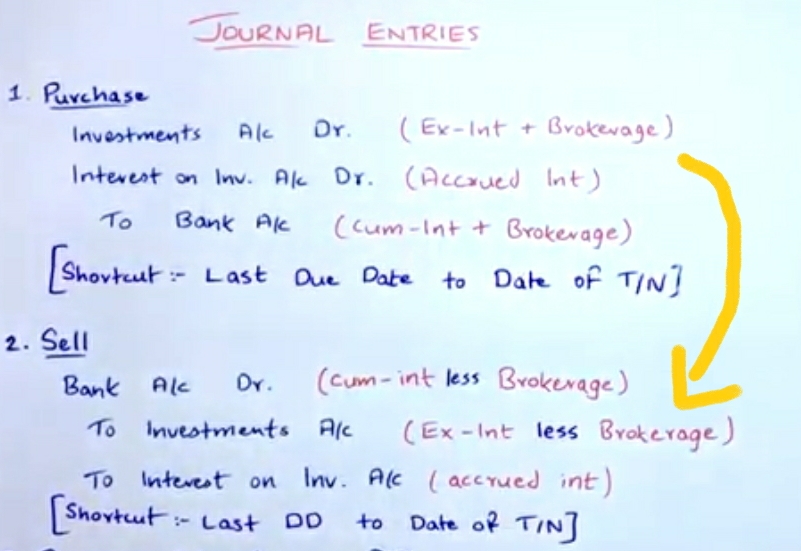 JOURNAL ENTRIES
1. Purchase
Investments A/c Dr. (Ex-Int + Brokerage)
Interest on Inv. A/c Dr. (Accrued Int)
To Bank A/c (Cum-Int + Brokerage)
[Shortcut :- Last Due Date to Date of T/N]
2. Sell
Bank A/c Dr. (Cum-int less Brokerage)
To Investments A/c (Ex-Int less Brokerage)
To Interest on Inv. A/c (accrued int)
[Shortcut :- Last DD to Date of T/N]